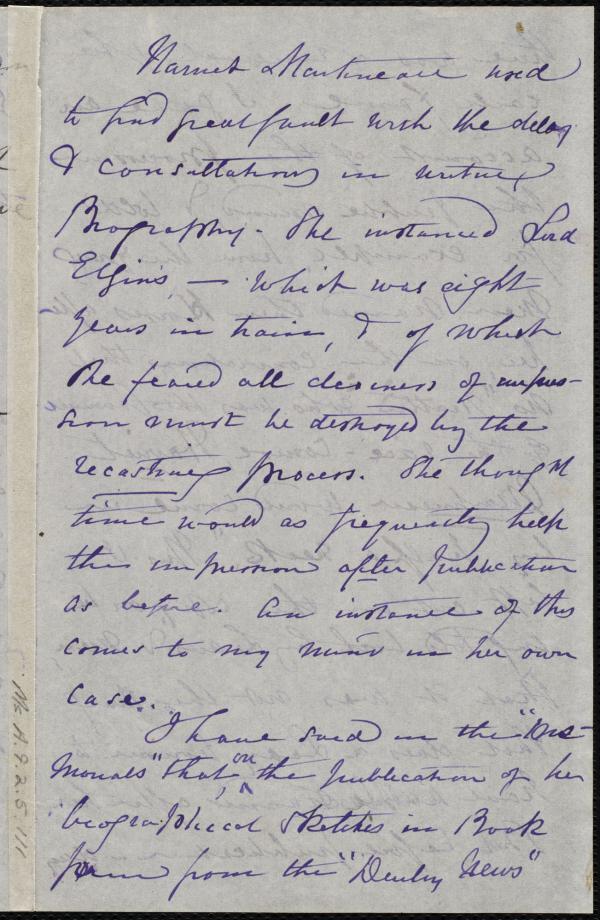 Harriet Martineau used
to find great fault with the delay
& consultations in writing
Biography. She instanced Lord
Elgin's, — which was eight
years in train, & of which
she feared all clearness of impres-
sion must be destroyed by the
recasting process. She thought
time would as frequently help
the impression after publication
as before. An instance of this
comes to my mind in her own
case.
I have said in the "Me-
morials" that, on the publication of her
biographical sketches in Book
form from the "Daily News"
Ms. A.9.2.5.111